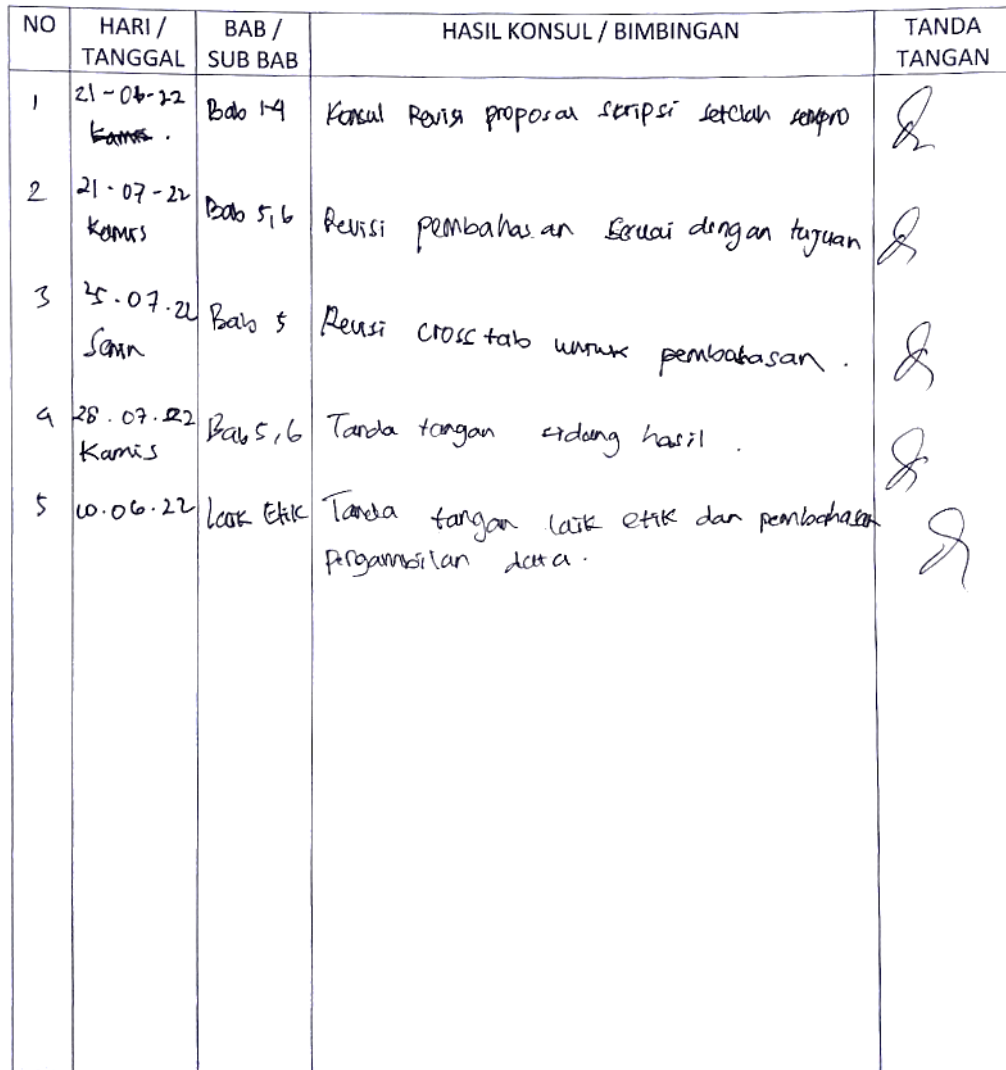 NO HARI / TANGGAL BAB / SUB BAB HASIL KONSUL / BIMBINGAN TANDA TANGAN
1 21-06-22 Bab 1-4 Konsul Revisi proposal skripsi setelah sempro
Kamis .
2 21-07-22 Bab 5,6 Revisi pembahasan sesuai dengan tujuan
Kamis
3 25.07.22 Bab 5 Revisi crosstab untuk pembahasan .
Senin
4 28.07.22 Bab 5,6 Tanda tangan sidang hasil .
Kamis
5 .06.22 Laik Etik Tanda tangan laik etik dan pembahasan
pengambilan data .